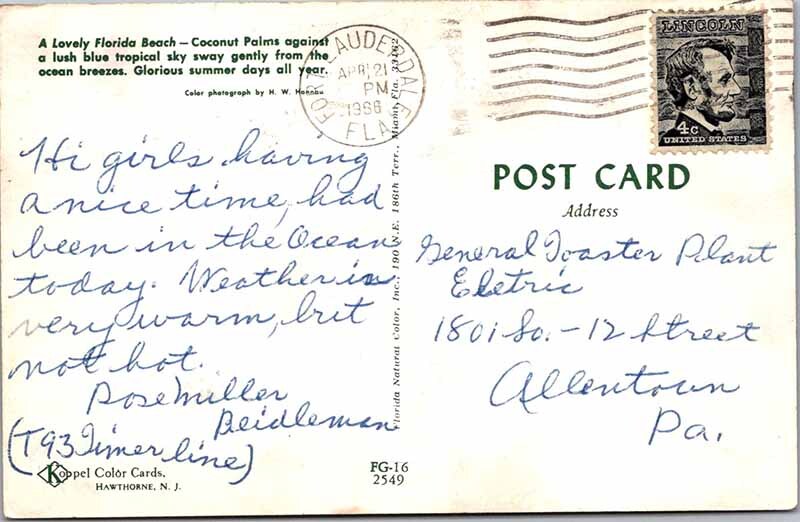 A Lovely Florida Beach — Coconut Palms against
a lush blue tropical sky sway gently from the
ocean breezes. Glorious summer days all year.
Color photograph by H. W. Hannau
Hi girls, having
a nice time, had
been in the Ocean
today. Weather is
very warm, but
not hot.
Rose Miller
Beidleman
(T93 Timer line)
Koppel Color Cards,
HAWTHORNE, N. J.
FG-16
2549
Florida Natural Color, Inc., 190 N.E. 186th Terr., Miami, Fla. 33162
FORT LAUDERDALE
APR 21
PM
1966
FLA
LINCOLN
4c
UNITED STATES
POST CARD
Address
General Toaster Plant
Eletric
1801 So. - 12 Street
Allentown
Pa.